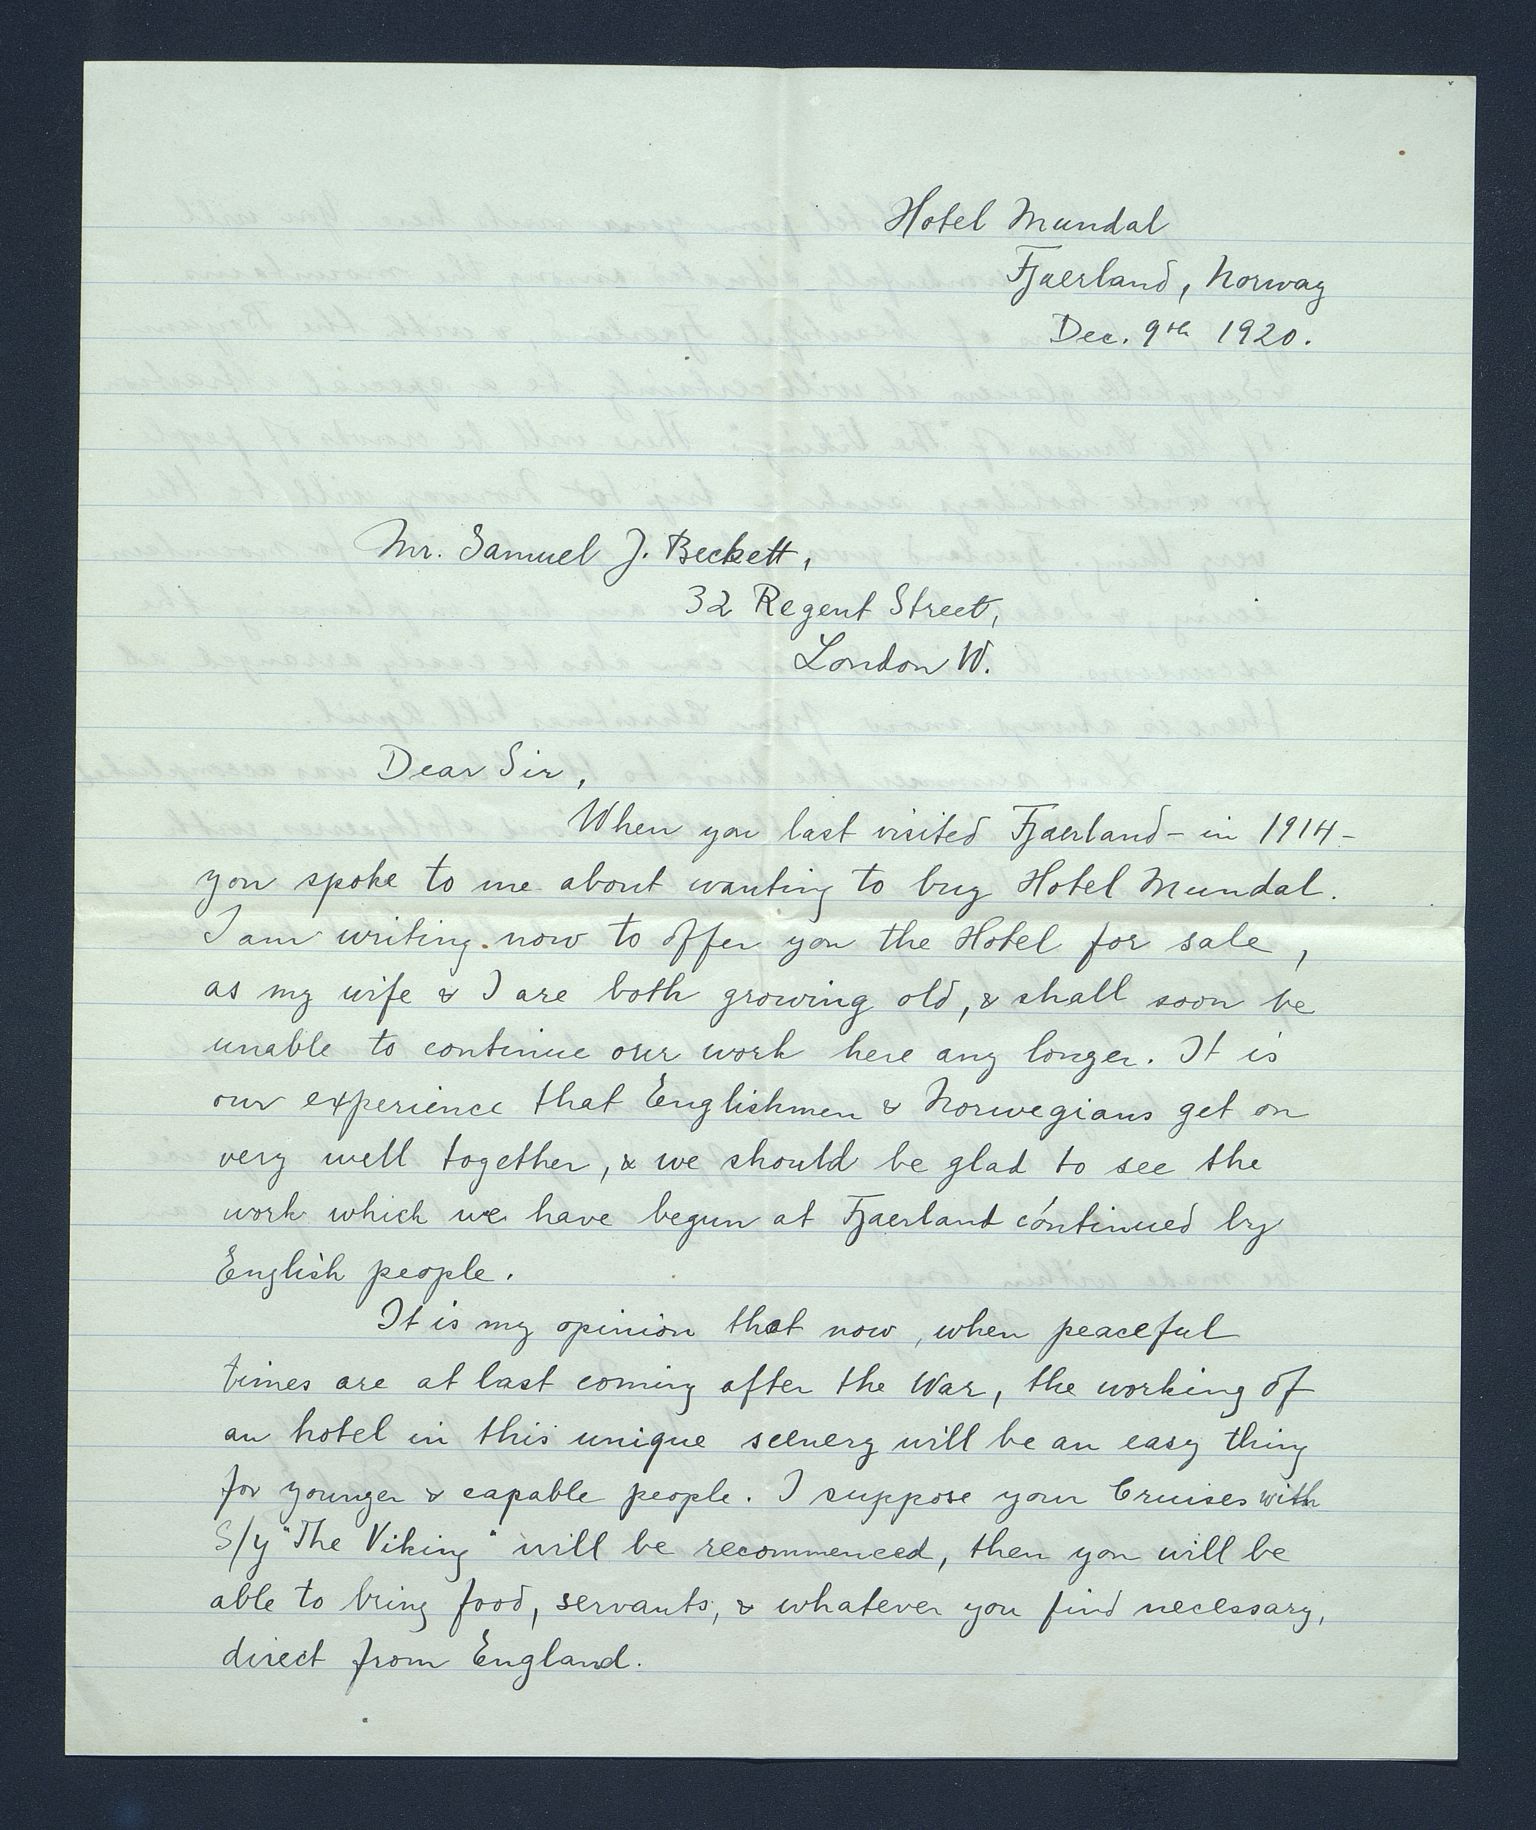 Hotel Mundal
Fjaerland, Norway
Dec. 9th 1920.
Mr. Samuel J. Beckett,
32 Regent Street,
London W.
Dear Sir,
When you last visited Fjaerland - in 1914 -
you spoke to me about wanting to buy Hotel Mundal.
I am writing now to offer you the Hotel for sale,
as my wife & I are both growing old, & shall soon be
unable to continue our work here any longer. It is
our experience that Englishmen & Norwegians get on
very well together, & we should be glad to see the
work which we have begun at Fjaerland continued by
English people.
It is my opinion that now, when peaceful
times are at last coming after the War, the working of
an hotel in this unique scenery will be an easy thing
for younger & capable people. I suppose your Cruises with
S/y "The Viking" will be recommenced, then you will be
able to bring food, servants, & whatever you find necessary,
direct from England.